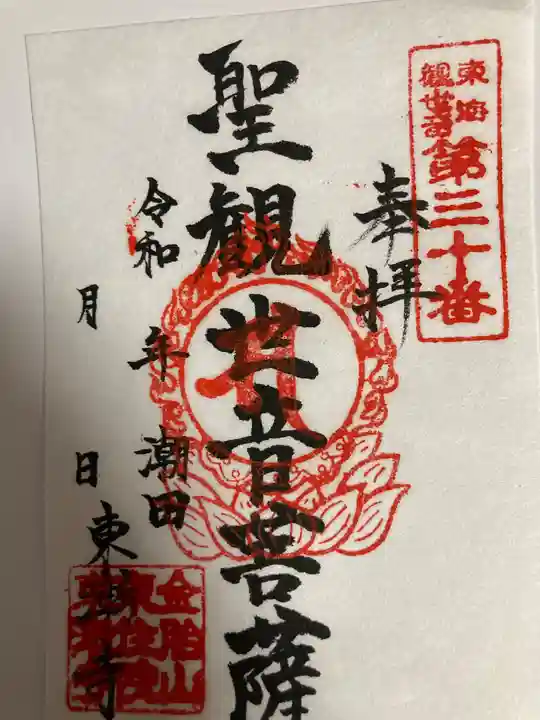 東海
観世音
第三十番
奉拝
聖観世音菩薩
令和 年
月 日
潮田
東漸寺
金胎山